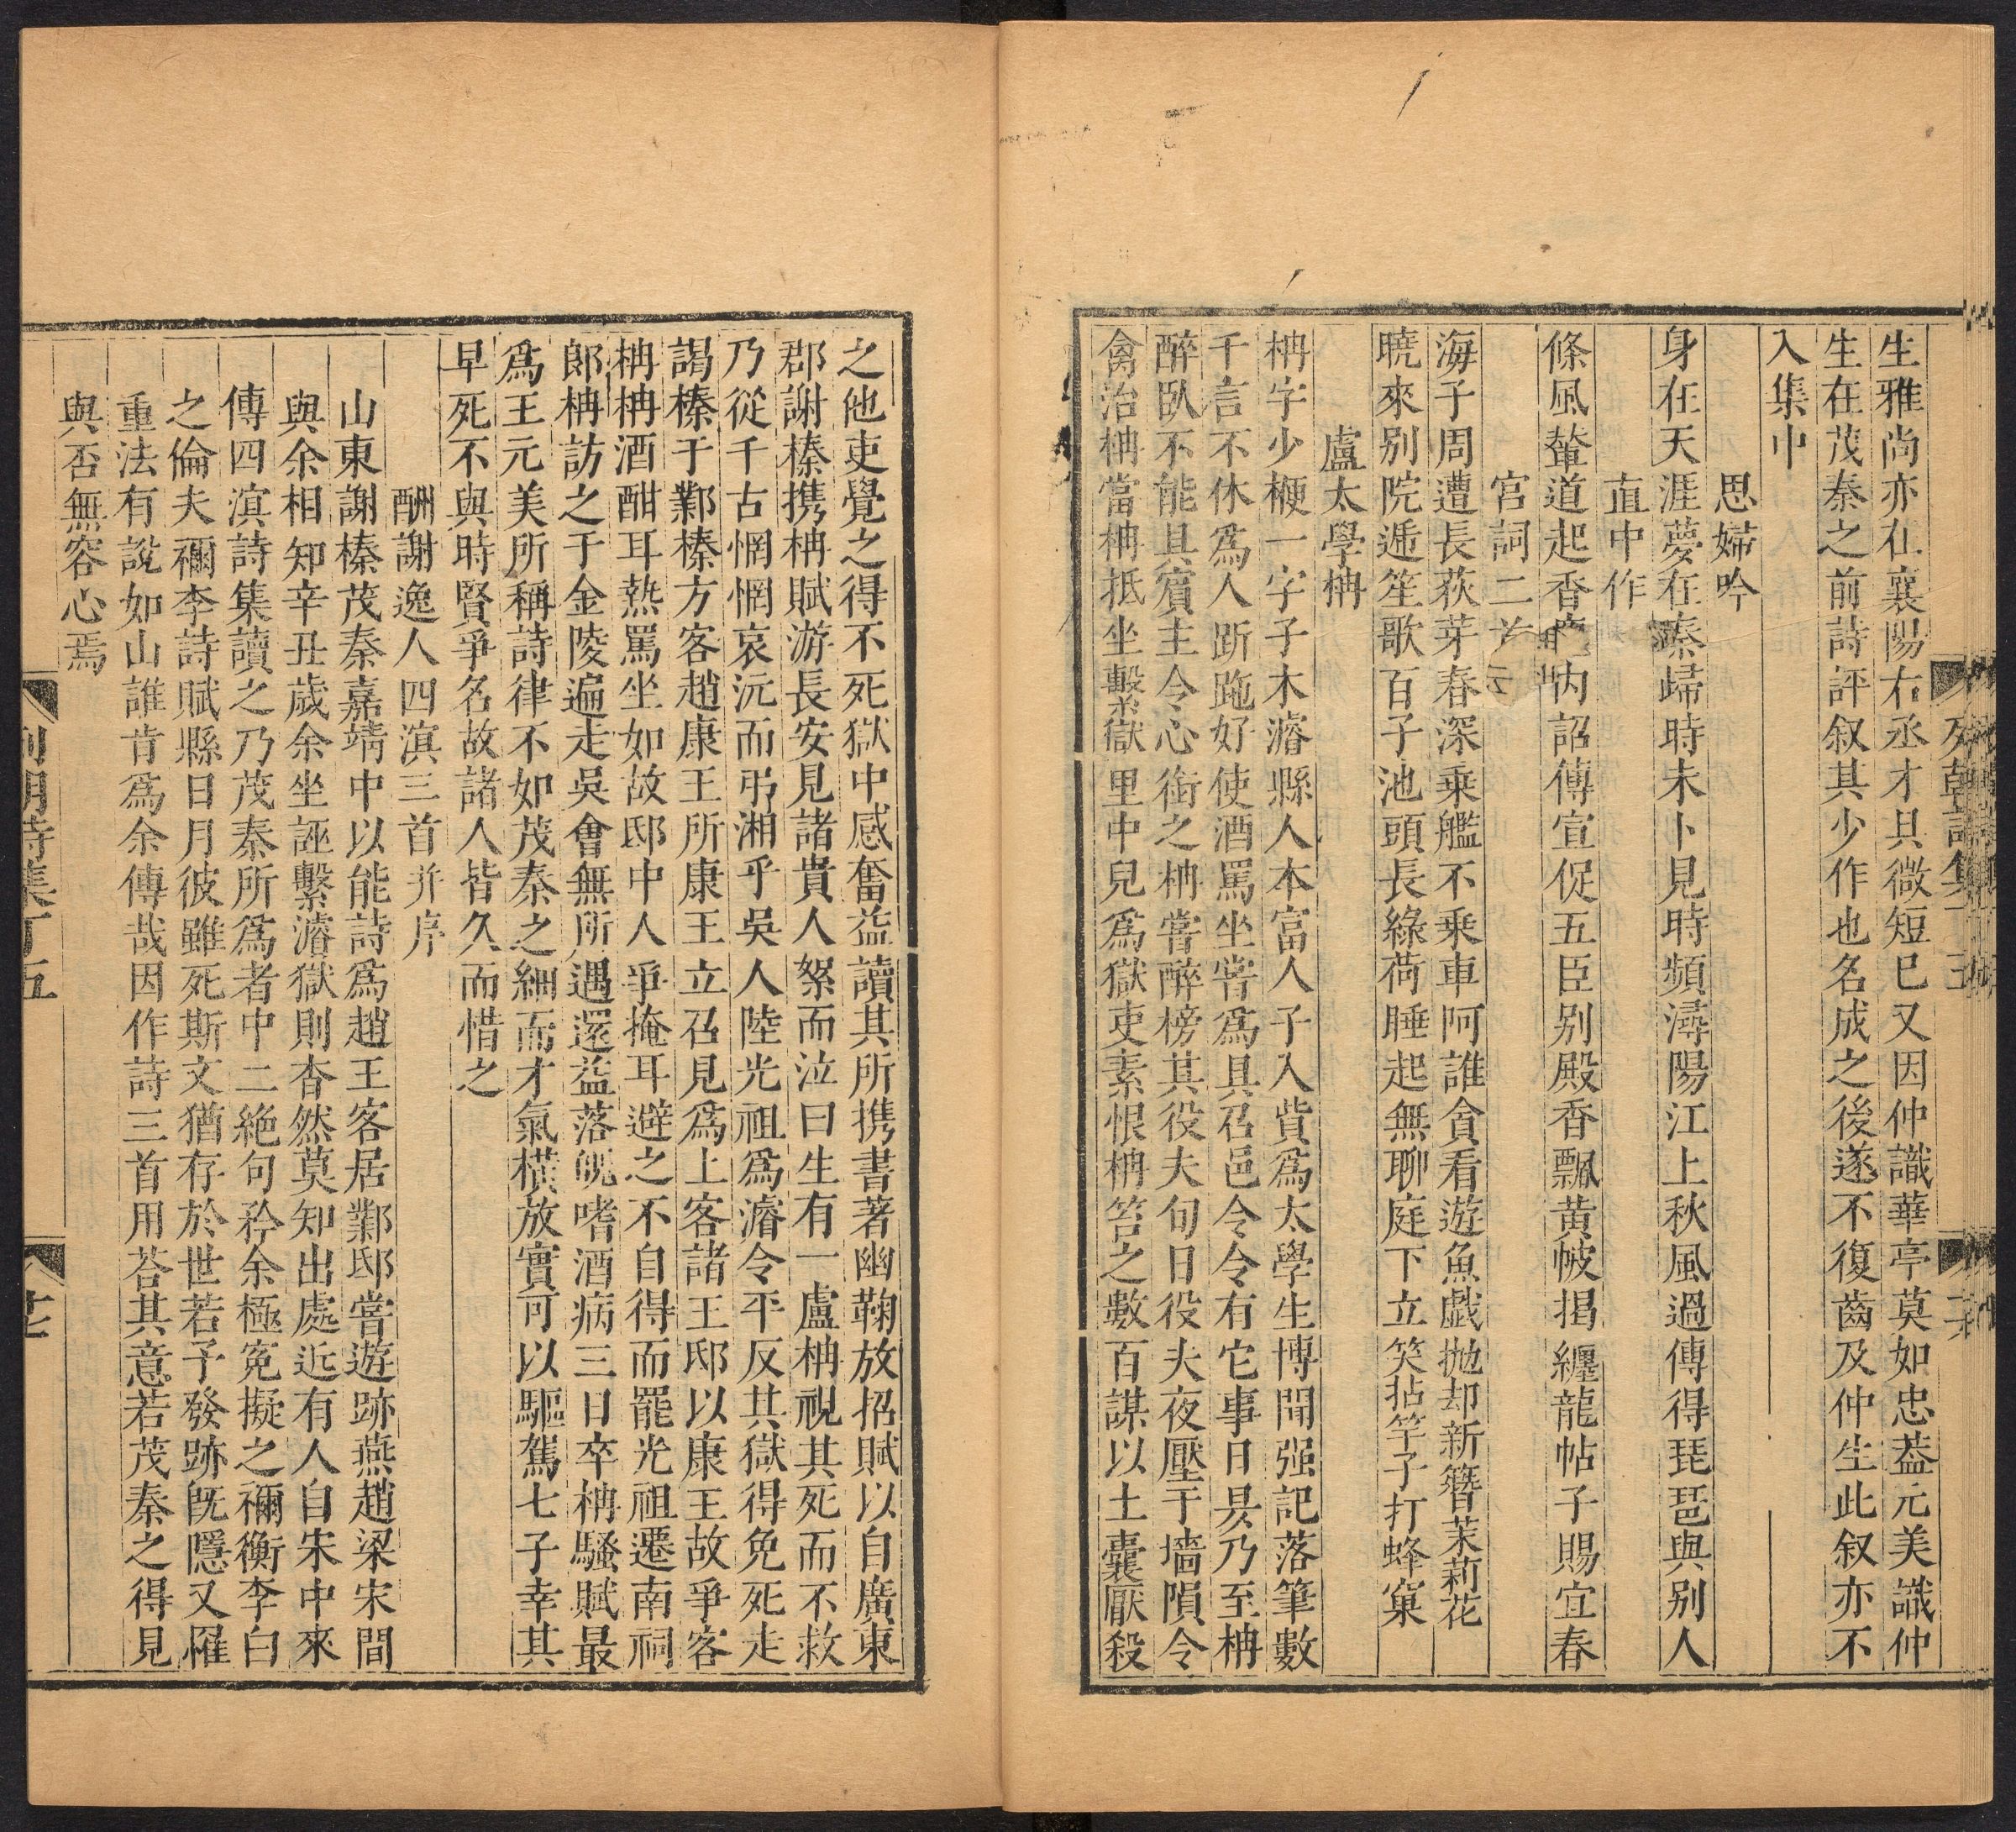 生雅尚亦在襄陽右丞才具微短已又因仲識華亭莫如忠葢元美識仲
生在茂秦之前詩評叙其少作也名成之後遂不復齒及仲生此叙亦不
入集中
思婦吟
身在天涯夢在秦歸時未卜見時頻潯陽江上秋風過傳得琵琶與别人
直中作
條風輦道起香 内詔傳宣促五臣别殿香飄黄帔揭纏龍帖子賜宜春
宮詞二首
海子周遭長荻芽春深乗艦不乗車阿誰貪看遊魚戯抛却新簪茉莉花
曉來别院遞笙歌百子池頭長綠荷睡起無聊庭下立笑拈竿子打蜂窠
盧太學柟
柟字少楩一字子木濬縣人本富人子入貲爲太學生博聞强記落筆數
千言不休爲人跅跎好使酒罵坐甞爲具召邑令令有它事日昃乃至柟
醉臥不能具賓主令心銜之柟嘗醉榜其役夫旬日役夫夜壓于墻隕令
禽治柟當柟抵坐繫獄里中兒爲獄吏素恨柟笞之數百謀以土囊厭殺
之他吏覺之得不死獄中感奮益讀其所携書著幽鞠放招賦以自廣東
郡謝榛携柟賦游長安見諸貴人絮而泣曰生有一盧柟視其死而不救
乃從千古惘惘哀沅而弔湘乎吳人陸光祖爲濬令平反其獄得免死走
謁榛于鄴榛方客趙康王所康王立召見爲上客諸王邸以康王故爭客
柟柟酒酣耳熱罵坐如故邸中人爭掩耳避之不自得而罷光祖遷南祠
郞柟訪之于金陵遍走吳會無所遇還益落魄嗜酒病三日卒柟騷賦最
爲王元美所稱詩律不如茂秦之細而才氣橫放實可以驅駕七子幸其
早死不與時賢爭名故諸人皆久而惜之
酬謝逸人四溟三首并序
山東謝榛茂秦嘉靖中以能詩爲趙王客居鄴邸嘗遊跡燕趙梁宋間
與余相知辛丑歲余坐誣繫濬獄則杳然莫知出處近有人自宋中來
傳四溟詩集讀之乃茂秦所爲者中二絶句矜余極寃擬之禰衡李白
之倫夫禰李詩賦縣日月彼雖死斯文猶存於世若予發跡旣隱又罹
重法有說如山誰肯爲余傳哉因作詩三首用荅其意若茂秦之得見
與否無容心焉
列朝詩集丁五
廿七